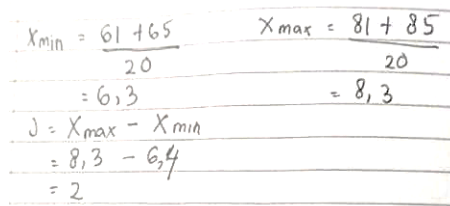 Xmin = 61 + 65 / 20
= 6,3
Xmax = 81 + 85 / 20
= 8,3
J = Xmax - Xmin
= 8,3 - 6,4
= 2